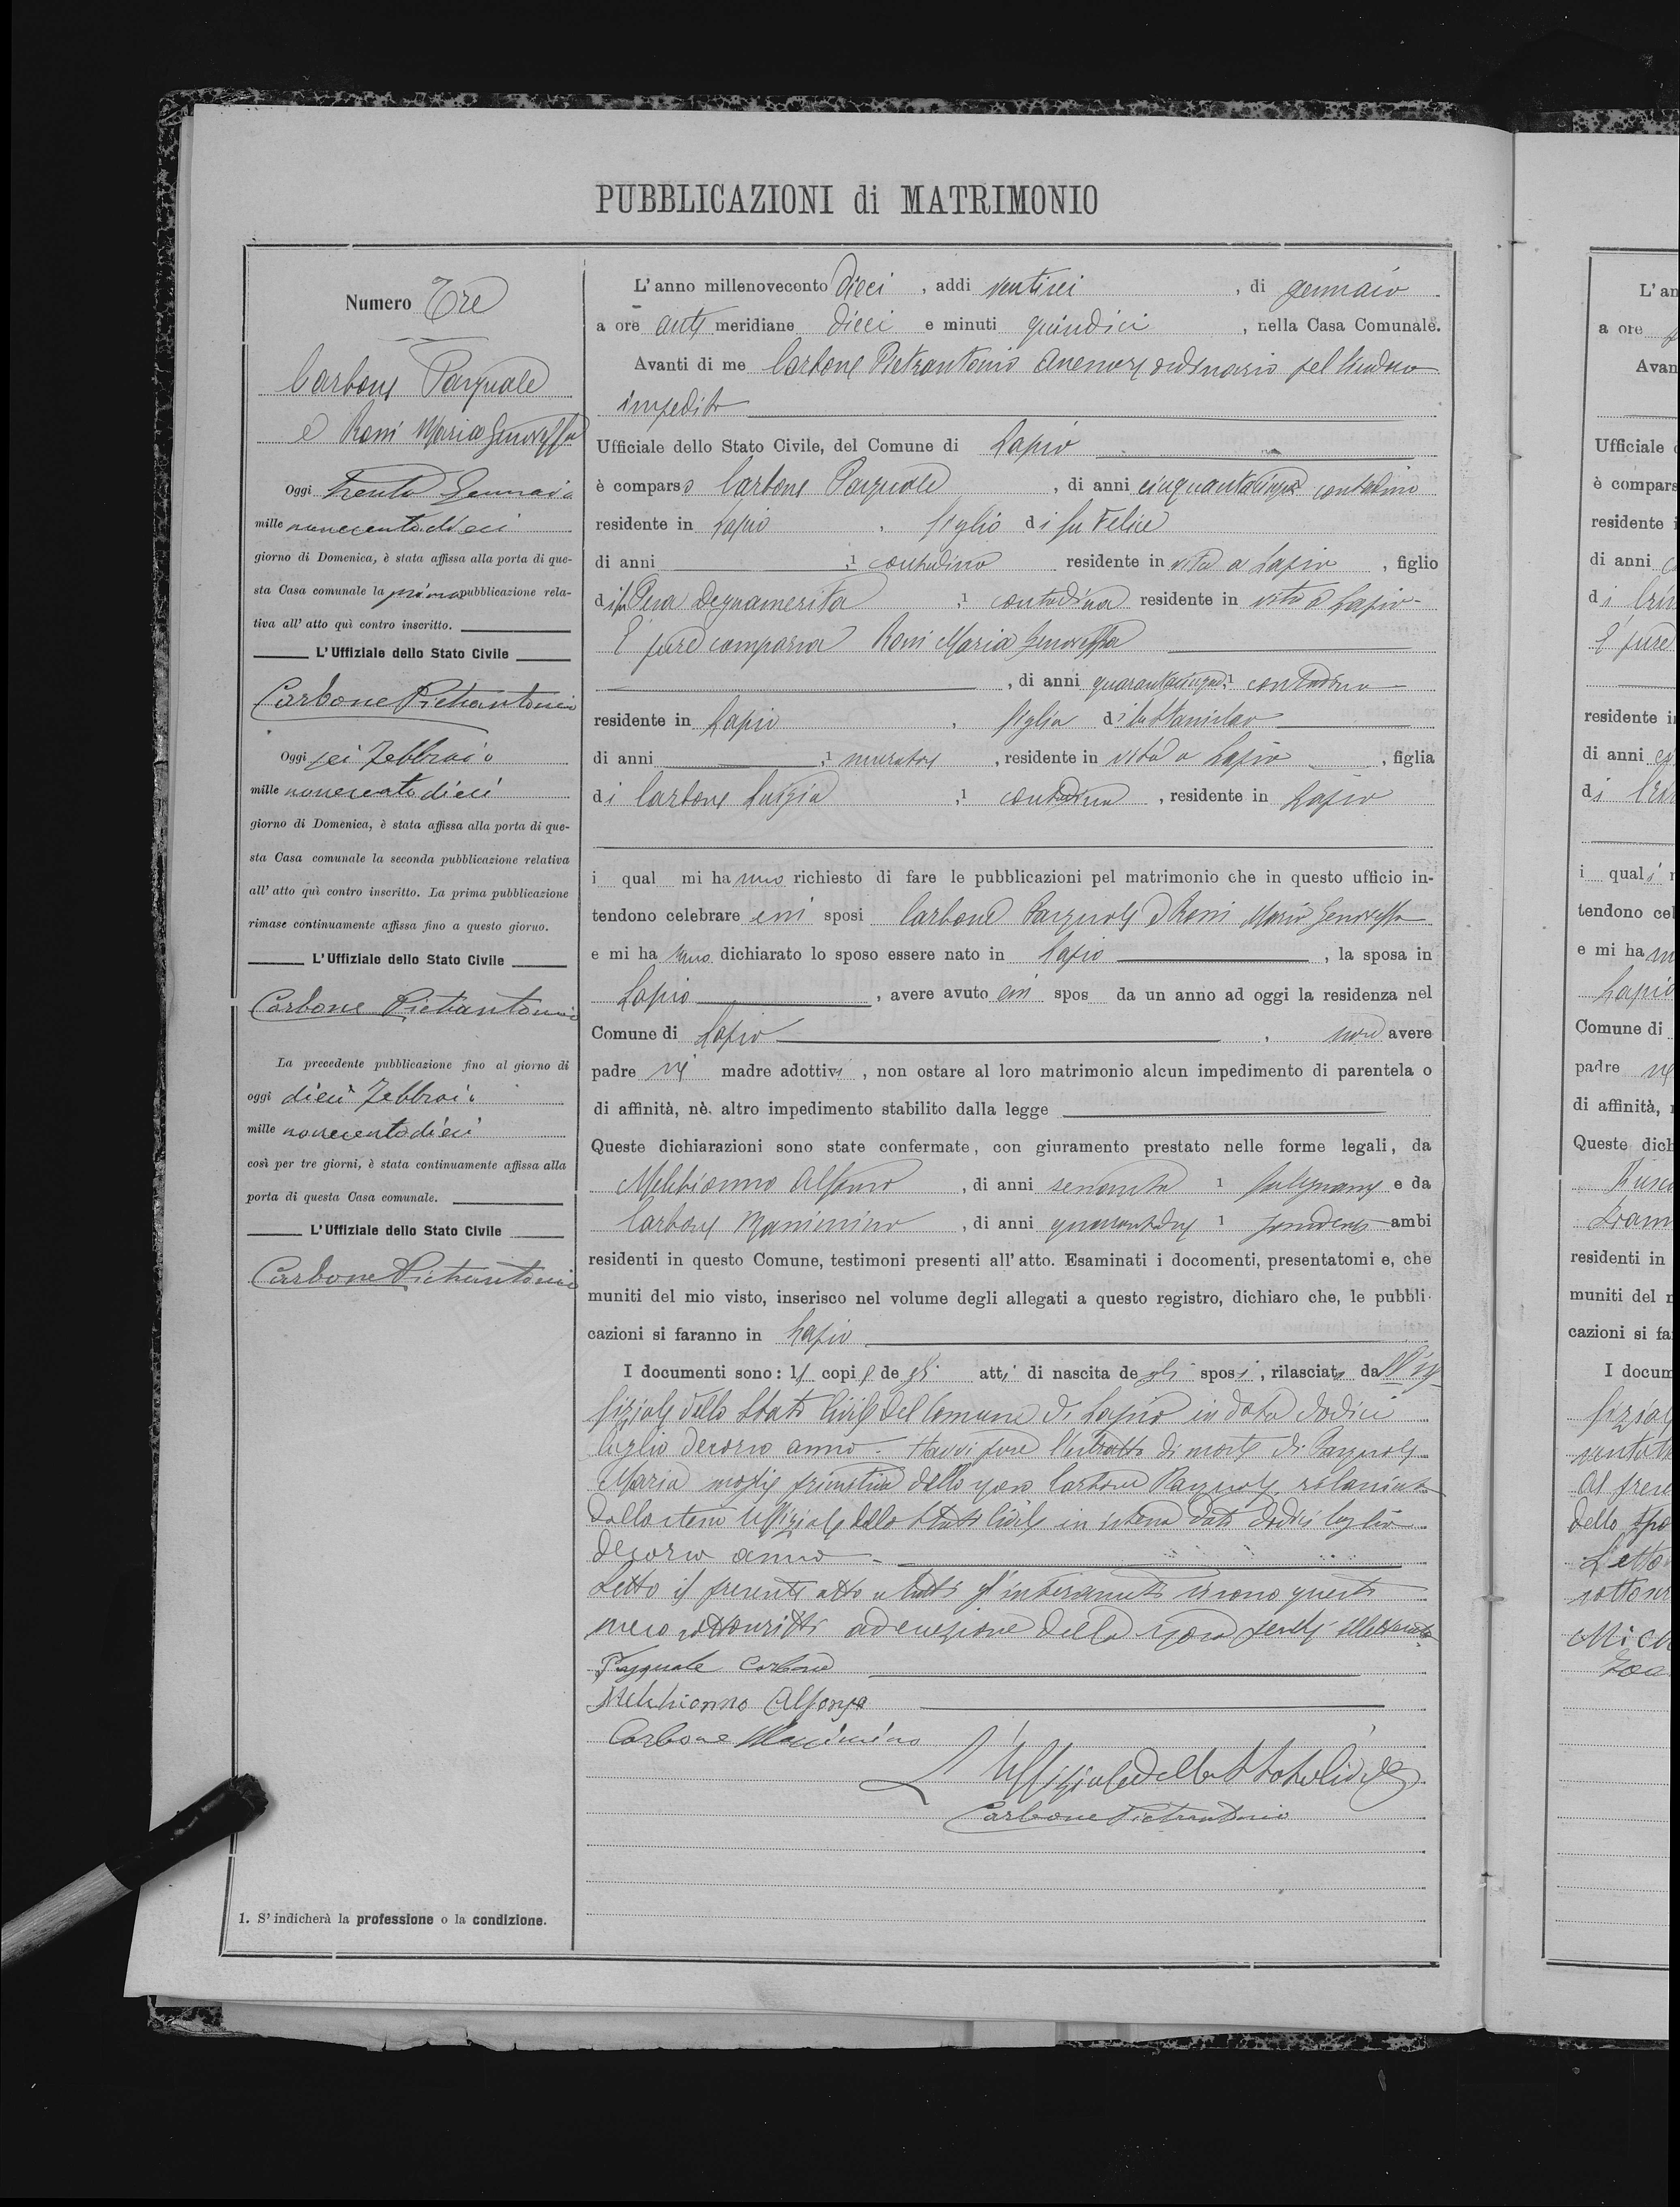 PUBBLICAZIONI di MATRIMONIO
Numero Tre
Carbone Pasquale
e Roni Maria Genoveffa
Oggi trenta Gennaio
mille novecentodieci
giorno di Domenica, è stata affissa alla porta di que-
sta Casa comunale la prima pubblicazione rela-
tiva all' atto quì contro inscritto.
L'Uffiziale dello Stato Civile
Carbone Pietrantonio
Oggi sei Febbraio
mille novecentodieci
giorno di Domenica, è stata affissa alla porta di que-
sta Casa comunale la seconda pubblicazione relativa
all' atto quì contro inscritto. La prima pubblicazione
rimase continuamente affissa fino a questo giorno.
L'Uffiziale dello Stato Civile
Carbone Pietrantonio
La precedente pubblicazione fino al giorno di
oggi dieci Febbraio
mille novecentodieci
così per tre giorni, è stata continuamente affissa alla
porta di questa Casa comunale.
L'Uffiziale dello Stato Civile
Carbone Pietrantonio
1. S' indicherà la professione o la condizione.
L' anno millenovecento dieci, addi ventisei, di gennaio
a ore anti meridiane dieci e minuti quindici, nella Casa Comunale.
Avanti di me Carbone Pietrantonio Assessore ordinario pel Sindaco
impedito
Ufficiale dello Stato Civile, del Comune di Lapio
è comparso Carbone Pasquale, di anni cinquantacinque contadino
residente in Lapio, figlio di fu Felice
di anni 1 contadino residente in vita a Lapio, figlio
di fu Pisa Degnamerita, 1 contadina residente in vita a Lapio
È pure comparsa Roni Maria Genoveffa
, di anni quarantacinque 1 contadina
residente in Lapio, figlia di fu Stanislao
di anni , 1 muratore, residente in vita a Lapio, figlia
di Carbone Luigia, 1 contadina, residente in Lapio
i qual mi hanno richiesto di fare le pubblicazioni pel matrimonio che in questo ufficio in-
tendono celebrare essi sposi Carbone Pasquale e Roni Maria Genoveffa
e mi hanno dichiarato lo sposo essere nato in Lapio, la sposa in
Lapio, avere avuto essi spos da un anno ad oggi la residenza nel
Comune di Lapio, non avere
padre nè madre adottivi, non ostare al loro matrimonio alcun impedimento di parentela o
di affinità, nè altro impedimento stabilito dalla legge
Queste dichiarazioni sono state confermate, con giuramento prestato nelle forme legali, da
Melchionno Alfonso, di anni sessanta 1 falegname e da
Carbone Massimino, di anni quarantadue 1 possidente ambi
residenti in questo Comune, testimoni presenti all' atto. Esaminati i documenti, presentatomi e, che
muniti del mio visto, inserisco nel volume degli allegati a questo registro, dichiaro che, le pubbli-
cazioni si faranno in Lapio
I documenti sono: le copie degli atti di nascita degli sposi, rilasciate dall'Uf-
fiziale dello Stato Civile del Comune di Lapio in data dodici
luglio decorso anno. Havvi pure l'estratto di morte di
Maria moglie primitiva dello sposo Carbone Pasquale, rilasciato
dallo stesso Uffiziale dello Stato Civile in istessa data dodici luglio
decorso anno.
Letto il presente atto a tutti gl'intervenuti si sono questi
meco sottoscritti ad eccezione della sposa perché illetterata
Pasquale Carbone
Melchionno Alfonso
Carbone Massimino
L'Uffiziale dello Stato Civile
Carbone Pietrantonio
L' an
a ore
Avan
Ufficiale
è compars
residente
di anni
di
È pure
residente i
di anni
di
i quali
tendono cel
e mi ha
Lapio
Comune di
padre nè
di affinità,
Queste dich
residenti in
muniti del
cazioni si fa
I docum
dello spo
Letto